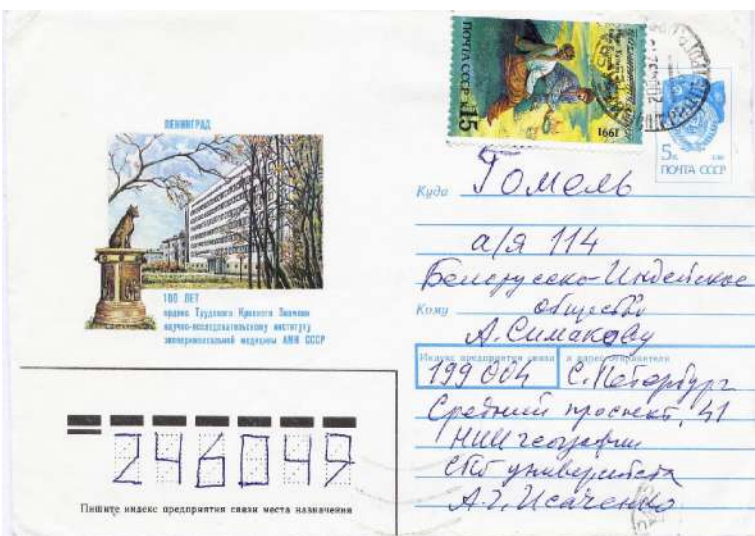 ЛЕНИНГРАД
100 ЛЕТ
ордена Трудового Красного Знамени
научно-исследовательскому институту
экспериментальной медицины АМН СССР
ПОЧТА СССР К15
1991
5к
ПОЧТА СССР
Куда Гомель
а/я 114
Белорусско-Индейское
Кому общество
А. Симакову
Индекс предприятия связи и адрес отправителя
199 004 С. Петербург
Средний проспект, 41
НИИ географии
СПб университета
А.Г. Исаченко
246049
Пишите индекс предприятия связи места назначения